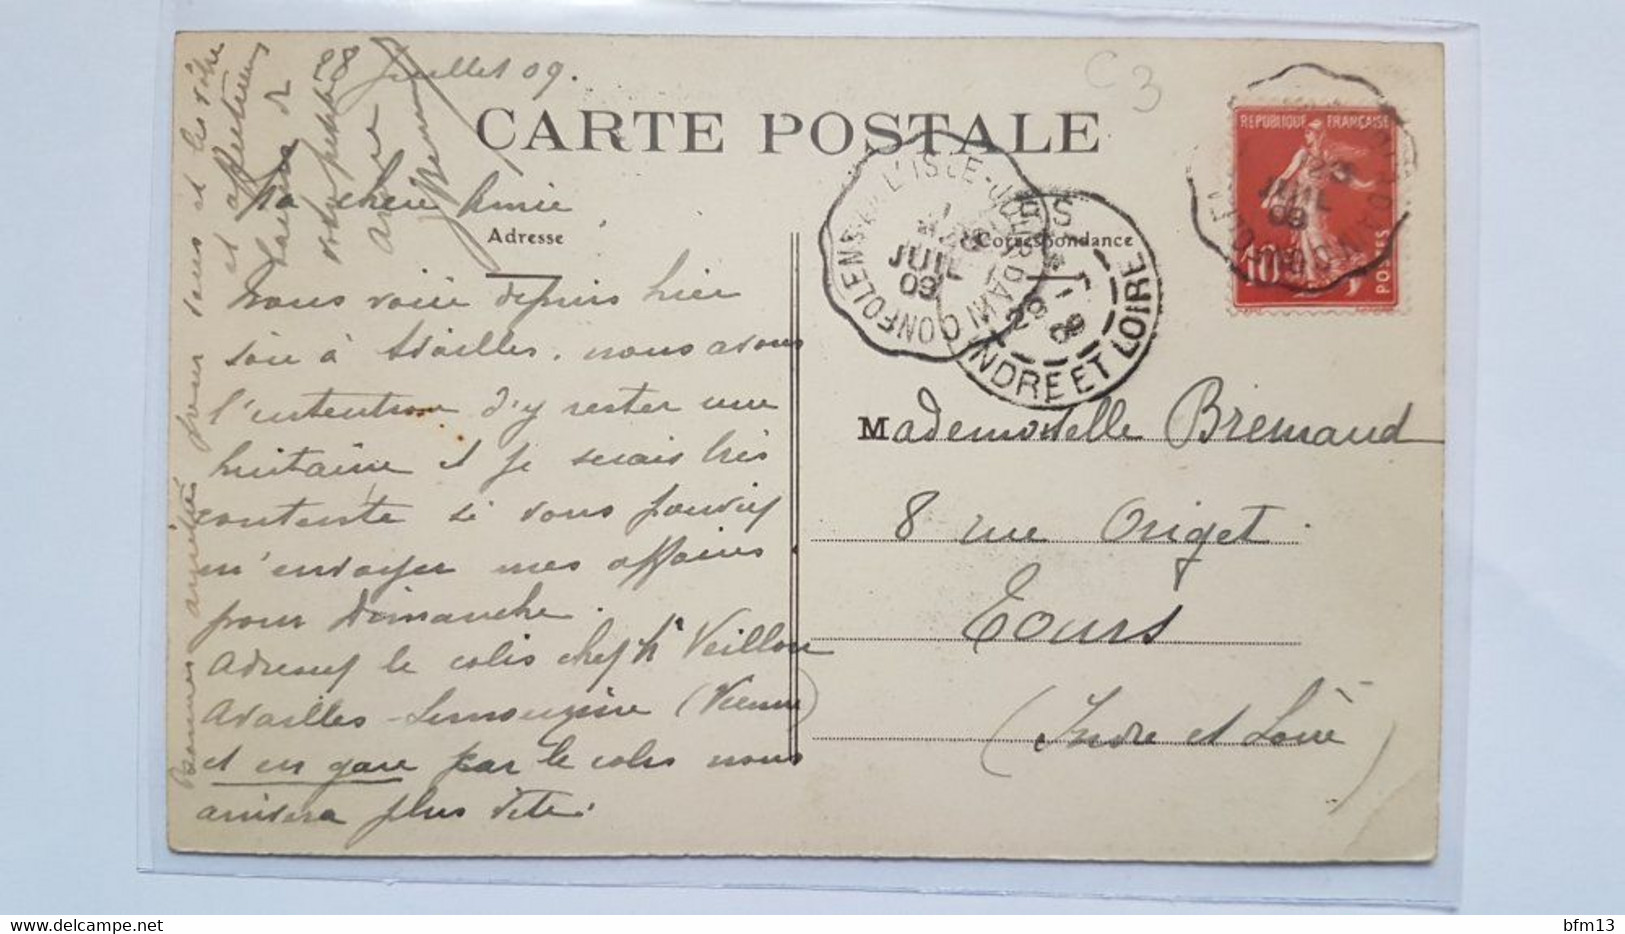 28 Juillet 09.
CARTE POSTALE
C3
Ma chère Amie
Adresse
Correspondance
Nous voici depuis hier
soir à Availles, nous avons
l'intention d'y rester une
huitaine et je serais très
contente si vous pouviez
m'envoyer mes affaires
pour Dimanche.
Adressez le colis chez Mr Veillon
Availles-Limouzine (Vienne)
et en gare par le colis nous
arrivera plus vite.
Bonnes amitiés pour vous et les vôtre
et affectueux
baisers
votre petite
amie
REPUBLIQUE FRANÇAISE
10
POSTES
CONFOLENS A L'ISLE-JOURDAIN
JUIL
09
INDRE ET LOIRE
28
09
JUIL
09
Mademoiselle Bremaud
8 rue Origet
Tours
(Indre et Loire)
bfm13